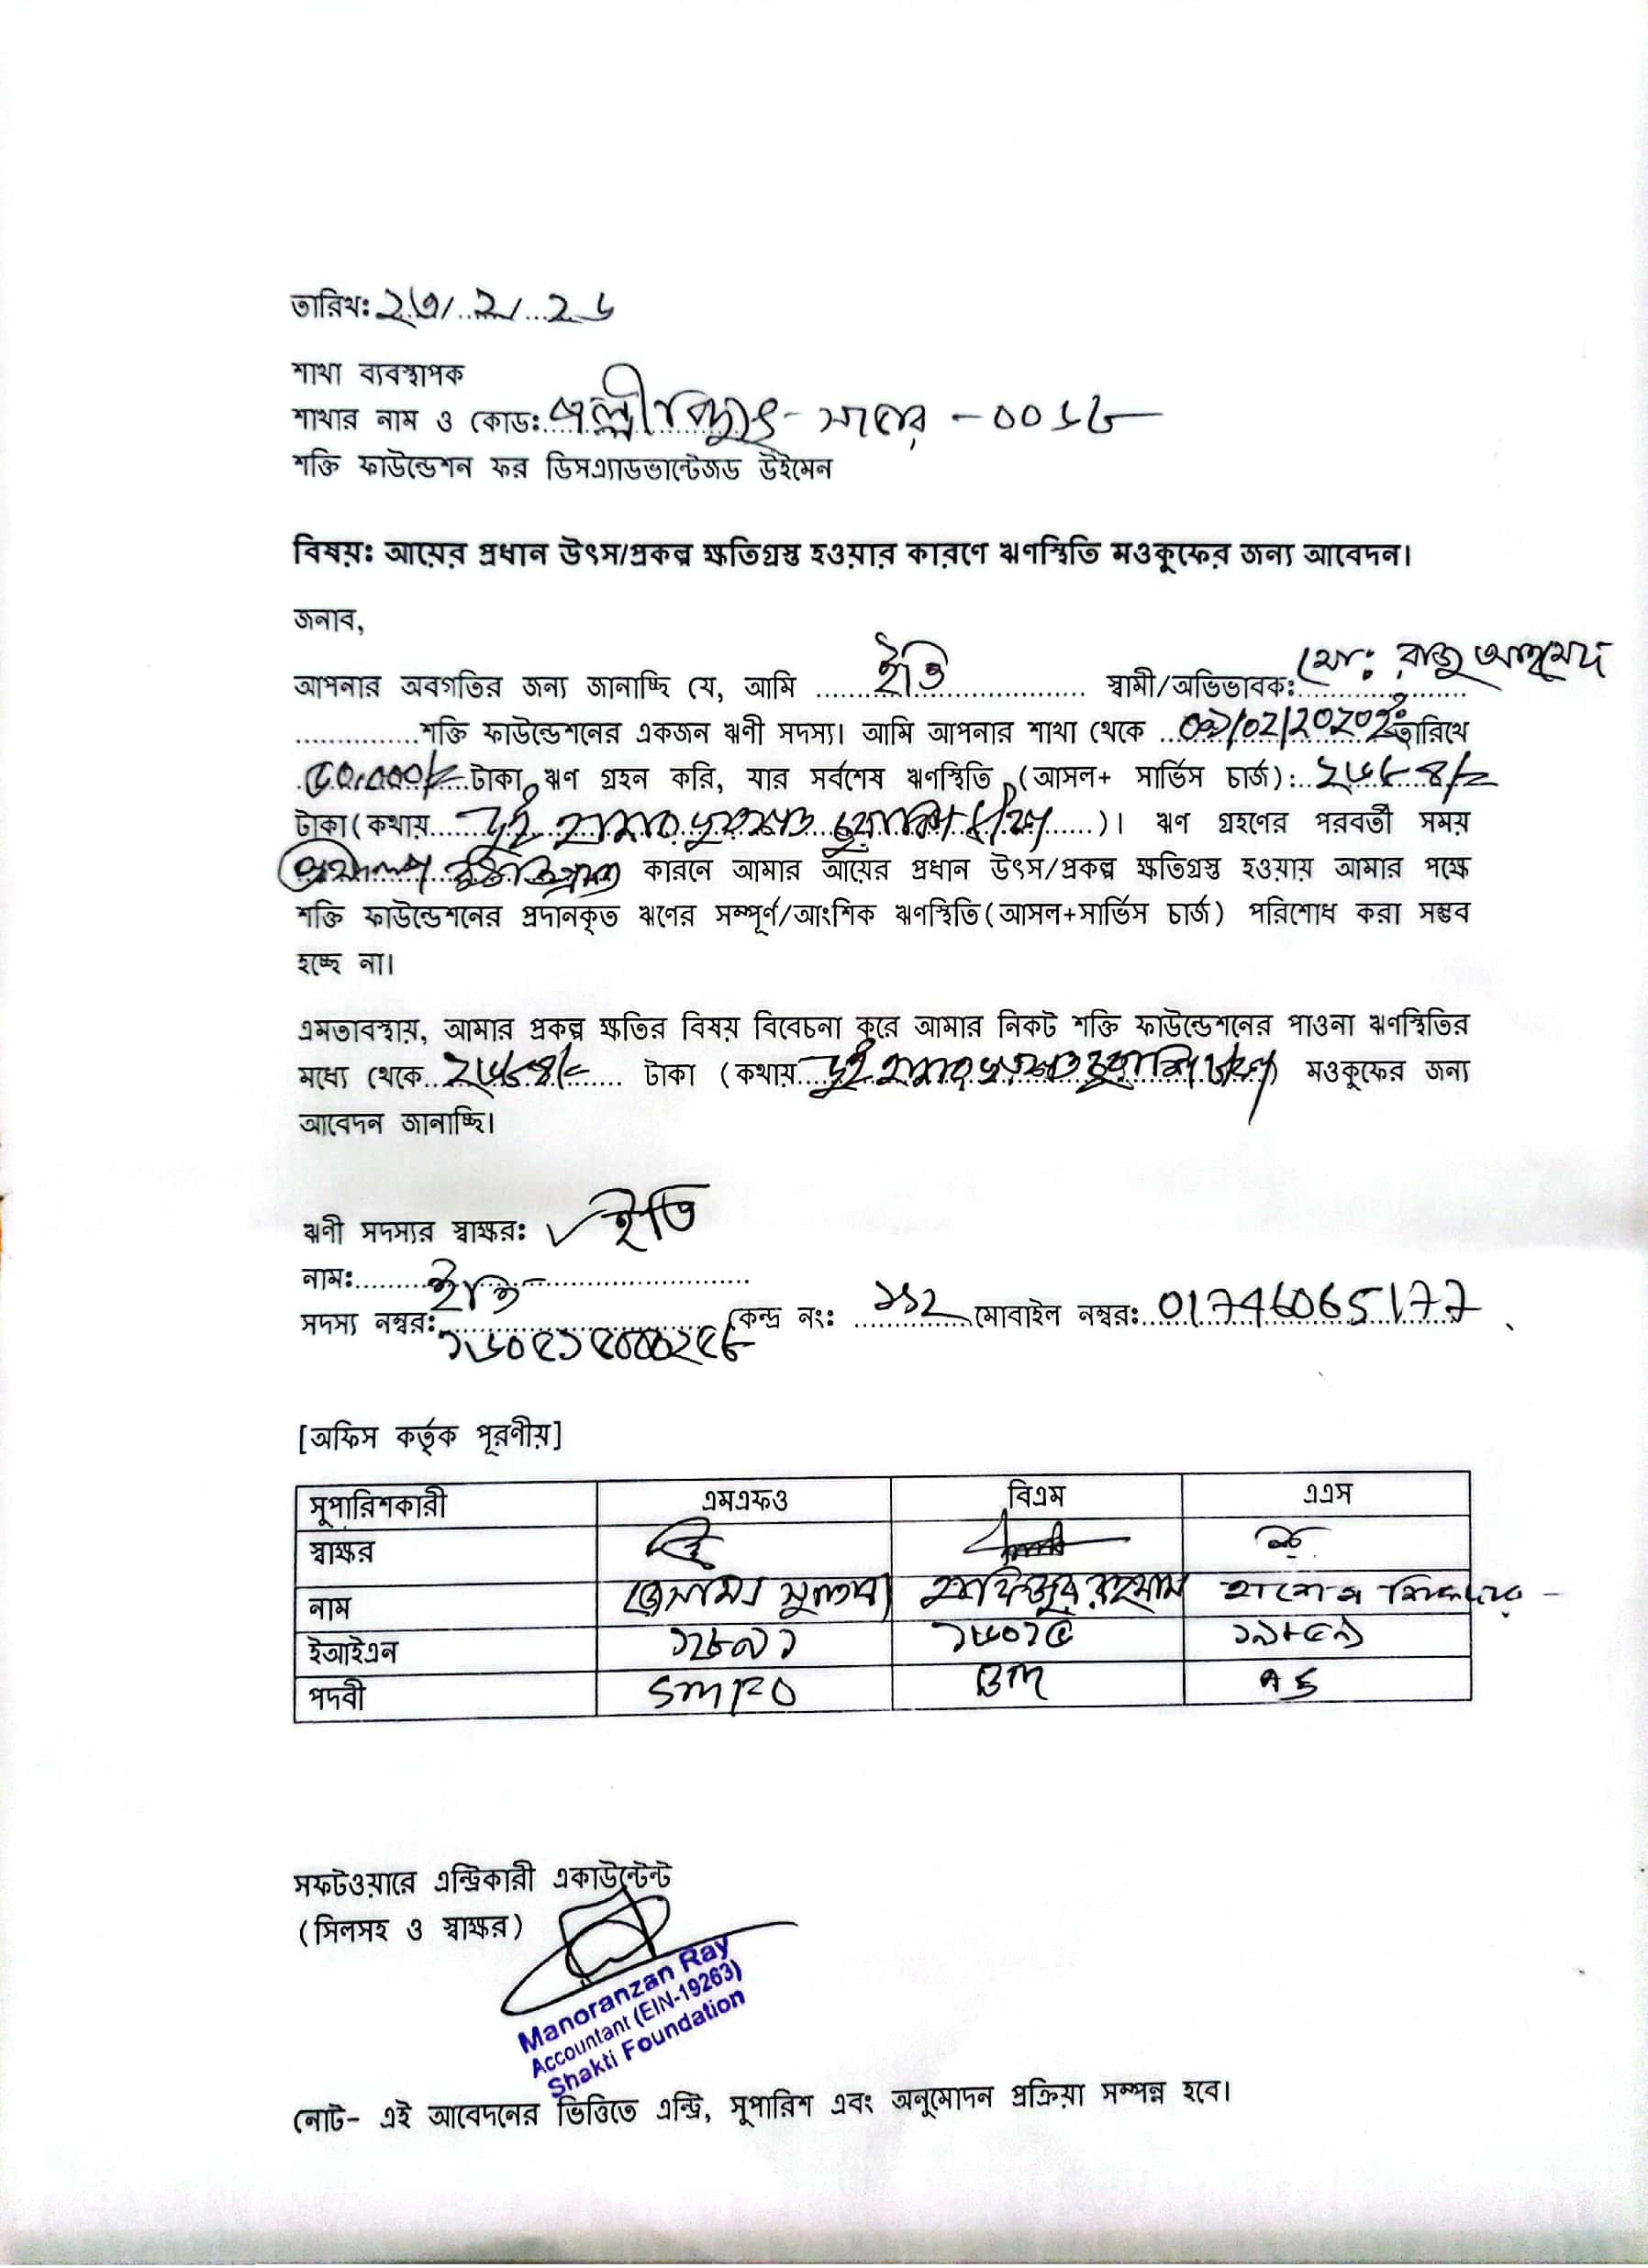 তারিখ: ২৩/২/২৬
শাখা ব্যবস্থাপক
শাখার নাম ও কোড: পল্লী বিদ্যুৎ- সাভার -০০১৮
শক্তি ফাউন্ডেশন ফর ডিসএ্যাডভান্টেজড উইমেন
বিষয়: আয়ের প্রধান উৎস/প্রকল্প ক্ষতিগ্রস্ত হওয়ার কারণে ঋণস্থিতি মওকুফের জন্য আবেদন।
জনাব,
আপনার অবগতির জন্য জানাচ্ছি যে, আমি ইতি স্বামী/অভিভাবক: মো: রাজু আহমেদ
শক্তি ফাউন্ডেশনের একজন ঋণী সদস্য। আমি আপনার শাখা থেকে তারিখে
৫০,০০০/= টাকা ঋণ গ্রহন করি, যার সর্বশেষ ঋণস্থিতি (আসল+ সার্ভিস চার্জ):
টাকা(কথায় দুই হাজার )। ঋণ গ্রহণের পরবর্তী সময়
ক্ষতিগ্রস্ত কারনে আমার আয়ের প্রধান উৎস/প্রকল্প ক্ষতিগ্রস্ত হওয়ায় আমার পক্ষে
শক্তি ফাউন্ডেশনের প্রদানকৃত ঋণের সম্পূর্ণ/আংশিক ঋণস্থিতি(আসল+সার্ভিস চার্জ) পরিশোধ করা সম্ভব
হচ্ছে না।
এমতাবস্থায়, আমার প্রকল্প ক্ষতির বিষয় বিবেচনা করে আমার নিকট শক্তি ফাউন্ডেশনের পাওনা ঋণস্থিতির
মধ্যে থেকে টাকা (কথায় দুই হাজার ) মওকুফের জন্য
আবেদন জানাচ্ছি।
ঋণী সদস্যর স্বাক্ষর: ইতি
নাম: ইতি
সদস্য নম্বর: কেন্দ্র নং: ১১২ মোবাইল নম্বর: 01746065177
[অফিস কর্তৃক পূরণীয়]
সুপারিশকারী এমএফও বিএম এএস
স্বাক্ষর
নাম হাফিজুর রহমান
ইআইএন
পদবী SMFO BM AS
সফটওয়ারে এন্ট্রিকারী একাউন্টেন্ট
(সিলসহ ও স্বাক্ষর)
Manoranzan Ray
Accountant (EIN-19263)
Shakti Foundation
নোট- এই আবেদনের ভিত্তিতে এন্ট্রি, সুপারিশ এবং অনুমোদন প্রক্রিয়া সম্পন্ন হবে।